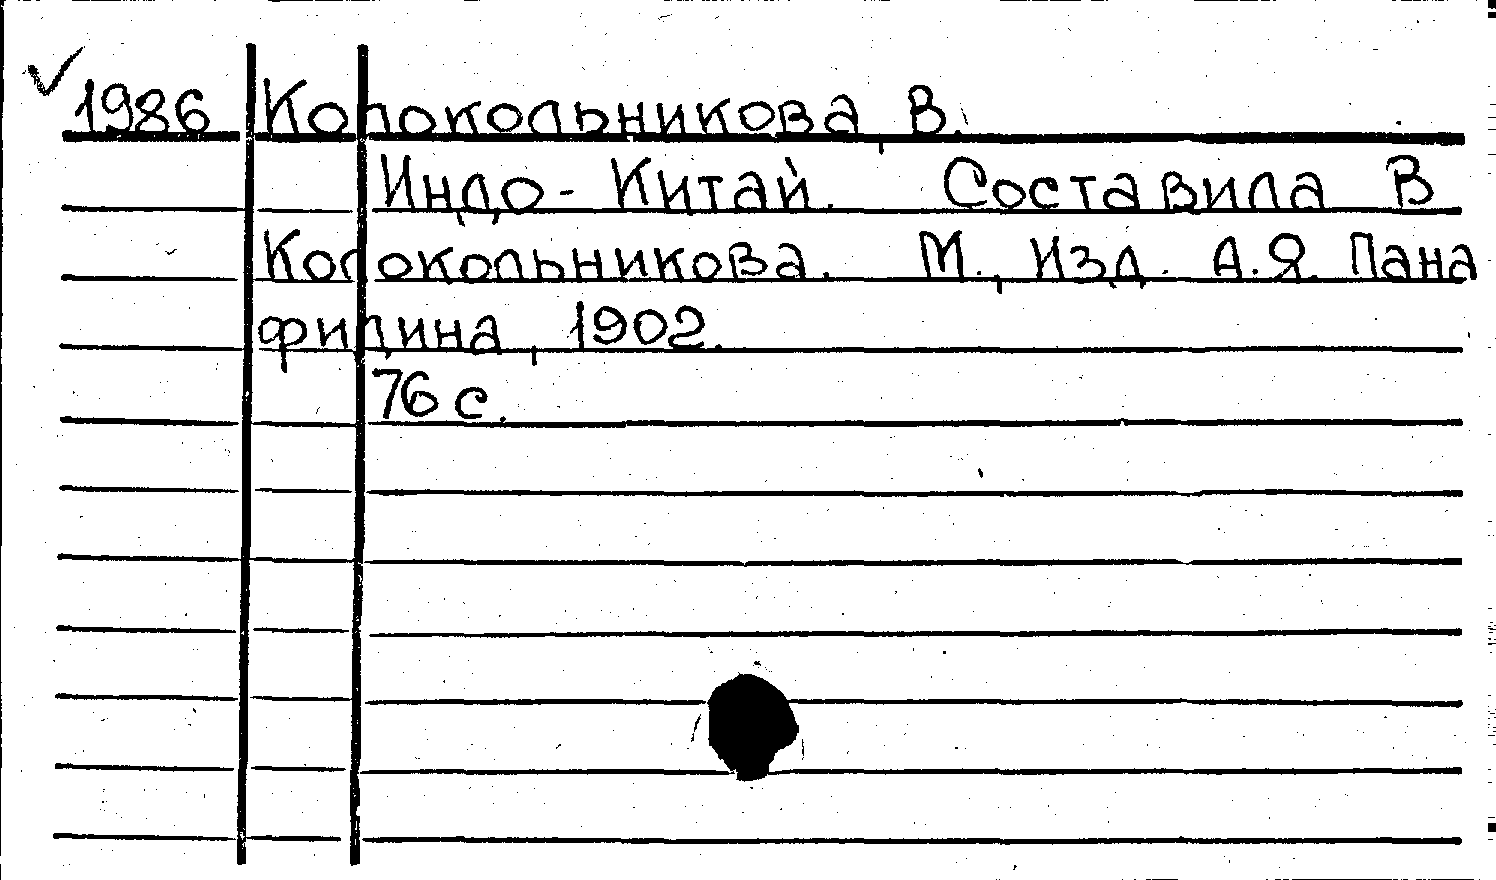 1986 Колокольникова В.
Индо-Китай. Составила В
Колокольникова. М., Изд. А.Я. Пана
филина, 1902.
76 с.